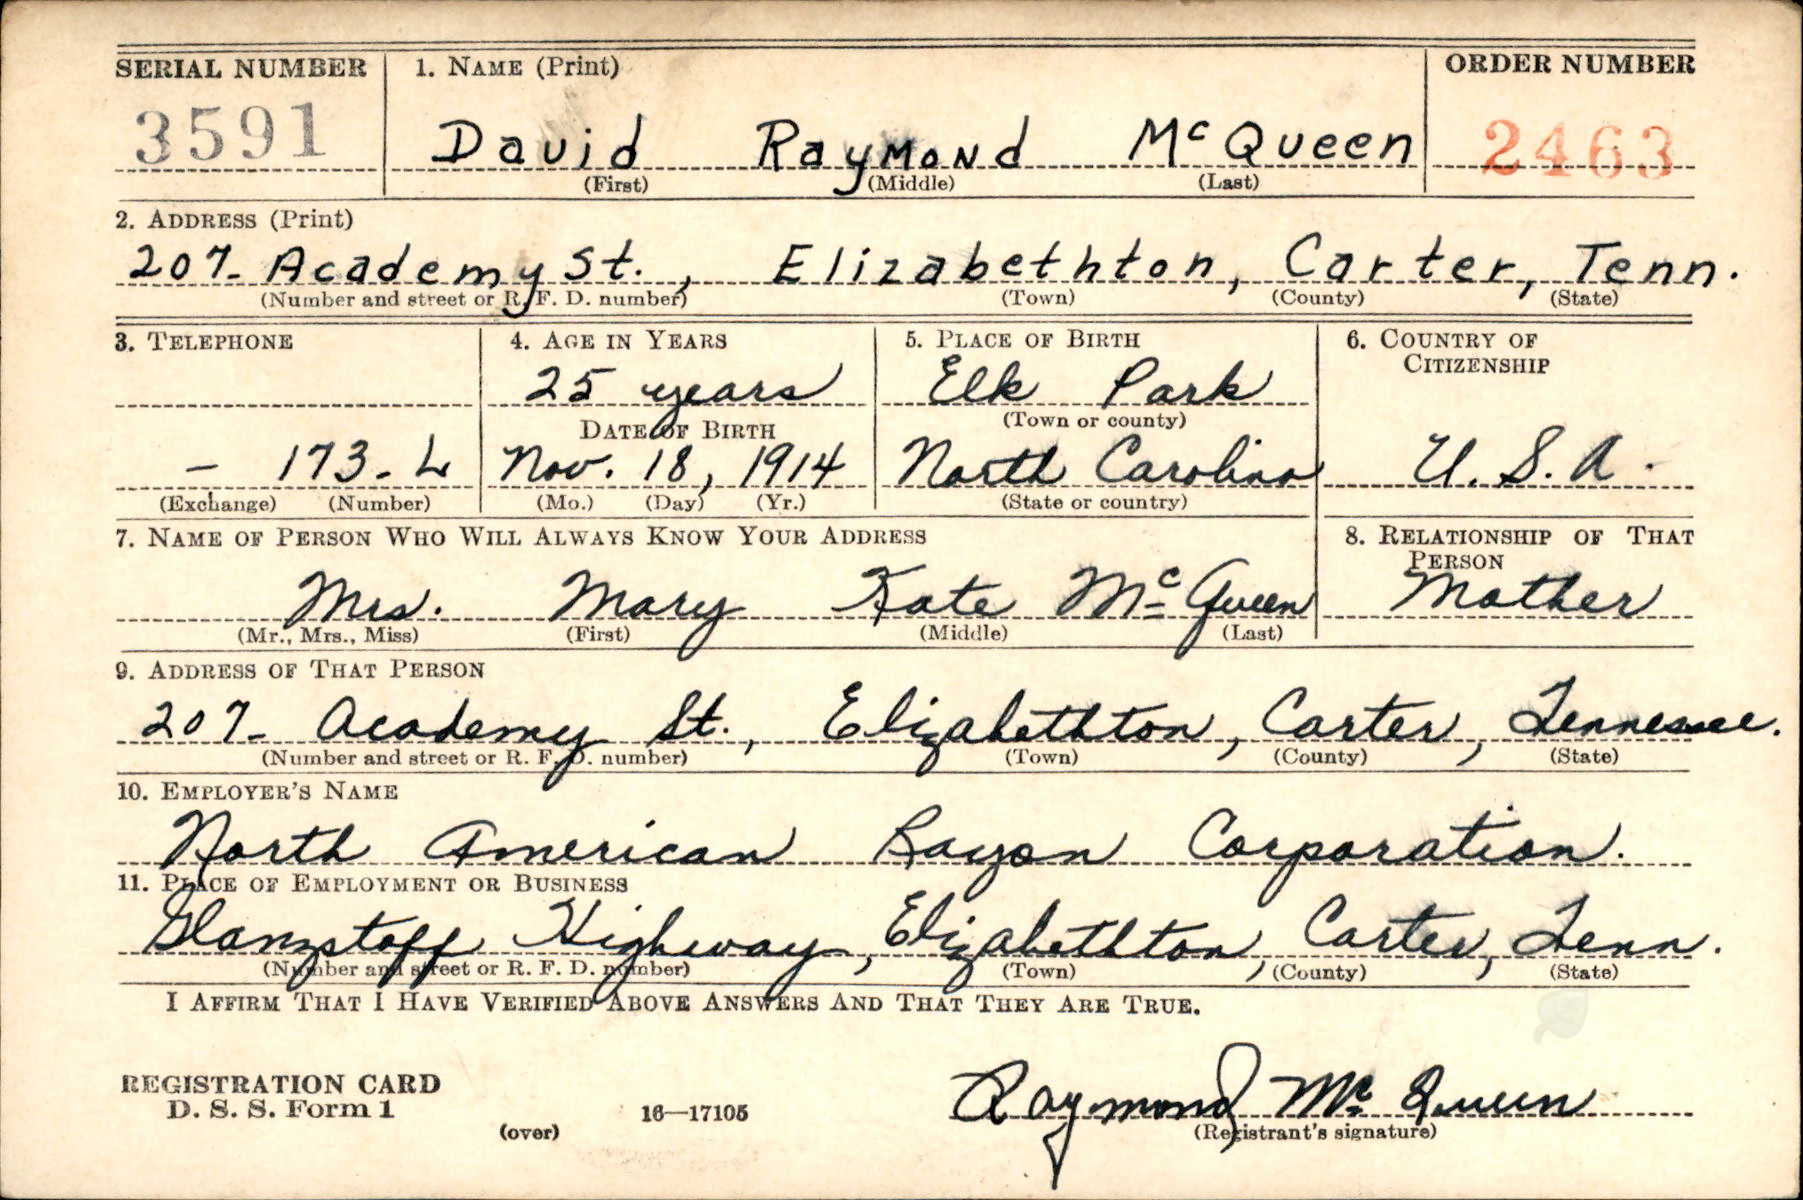 SERIAL NUMBER 1. NAME (Print) ORDER NUMBER
3591 David Raymond McQueen 2463
(First) (Middle) (Last)
2. ADDRESS (Print)
207- Academy St., Elizabethton, Carter, Tenn.
(Number and street or R. F. D. number) (Town) (County) (State)
3. TELEPHONE 4. AGE IN YEARS 5. PLACE OF BIRTH 6. COUNTRY OF CITIZENSHIP
25 years Elk Park
DATE OF BIRTH (Town or county)
- 173-L Nov. 18, 1914 North Carolina U. S. A.
(Exchange) (Number) (Mo.) (Day) (Yr.) (State or country)
7. NAME OF PERSON WHO WILL ALWAYS KNOW YOUR ADDRESS 8. RELATIONSHIP OF THAT PERSON
Mrs. Mary Kate McQueen Mother
(Mr., Mrs., Miss) (First) (Middle) (Last)
9. ADDRESS OF THAT PERSON
207- Academy St., Elizabethton, Carter, Tennessee.
(Number and street or R. F. D. number) (Town) (County) (State)
10. EMPLOYER'S NAME
North American Rayon Corporation.
11. PLACE OF EMPLOYMENT OR BUSINESS
Glanzstoff Highway, Elizabethton, Carter, Tenn.
(Number and street or R. F. D. number) (Town) (County) (State)
I AFFIRM THAT I HAVE VERIFIED ABOVE ANSWERS AND THAT THEY ARE TRUE.
REGISTRATION CARD
D. S. S. Form 1 16—17105 Raymond McQueen
(over) (Registrant's signature)